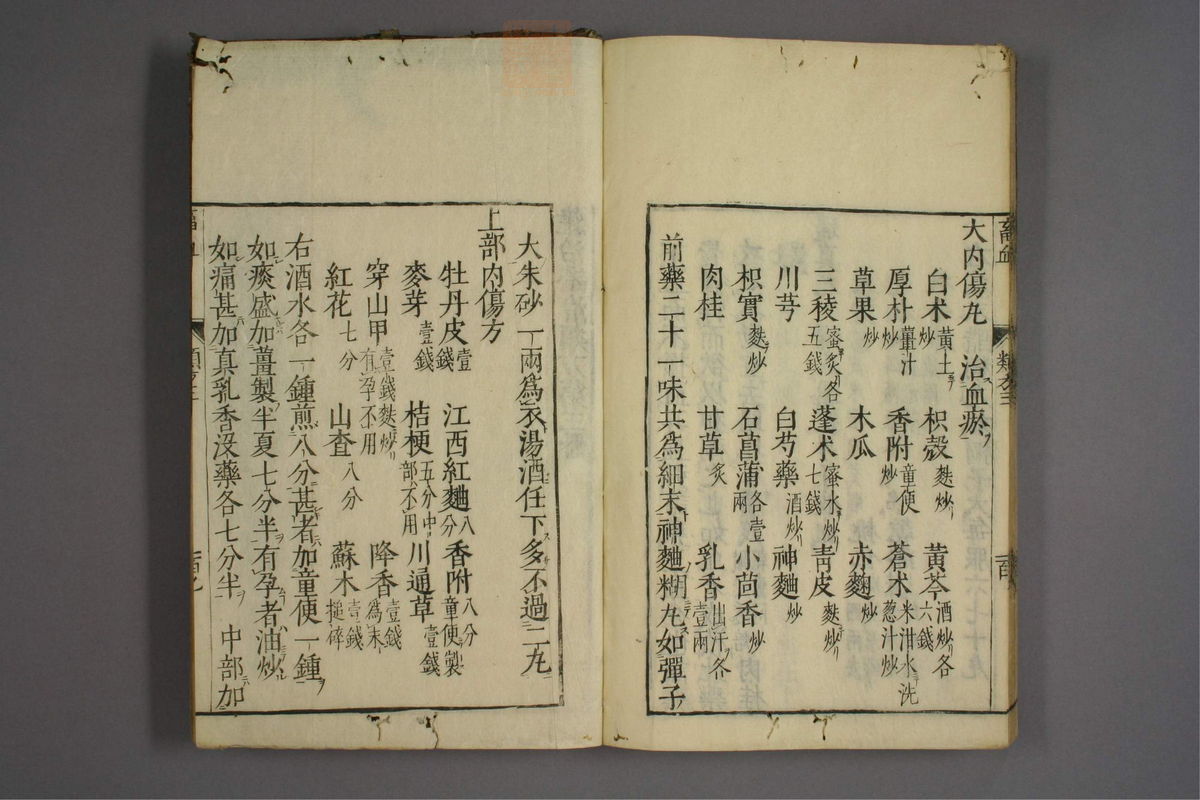 大内傷丸　治血瘀
白朮黄土炒　枳殼麩炒　黄芩酒炒各六錢
厚朴薑汁炒　香附童便炒　蒼朮米泔水洗葱汁炒
草果炒　木瓜　赤麴炒
三稜蜜炙各五錢　蓬朮蜜水炒七錢　青皮麩炒
川芎　白芍藥酒炒　神麯炒
枳實麩炒　石菖蒲各壹兩　小茴香炒
肉桂　甘草炙　乳香出汗各壹兩
前藥二十一味共爲細末神麯糊丸如彈子
大朱砂一兩爲衣湯酒任下多不過二丸
上部内傷方
牡丹皮壹錢　江西紅麯八分　香附八分童便製
麥芽壹錢　桔梗五分中部不用　川通草壹錢
穿山甲壹錢麩炒有孕不用　降香壹錢爲末
紅花七分　山査八分　蘇木壹錢搥碎
右酒水各一鍾煎八分甚者加童便一鍾
如痰盛加薑製半夏七分半有孕者油炒
如痛甚加真乳香没藥各七分半　中部加